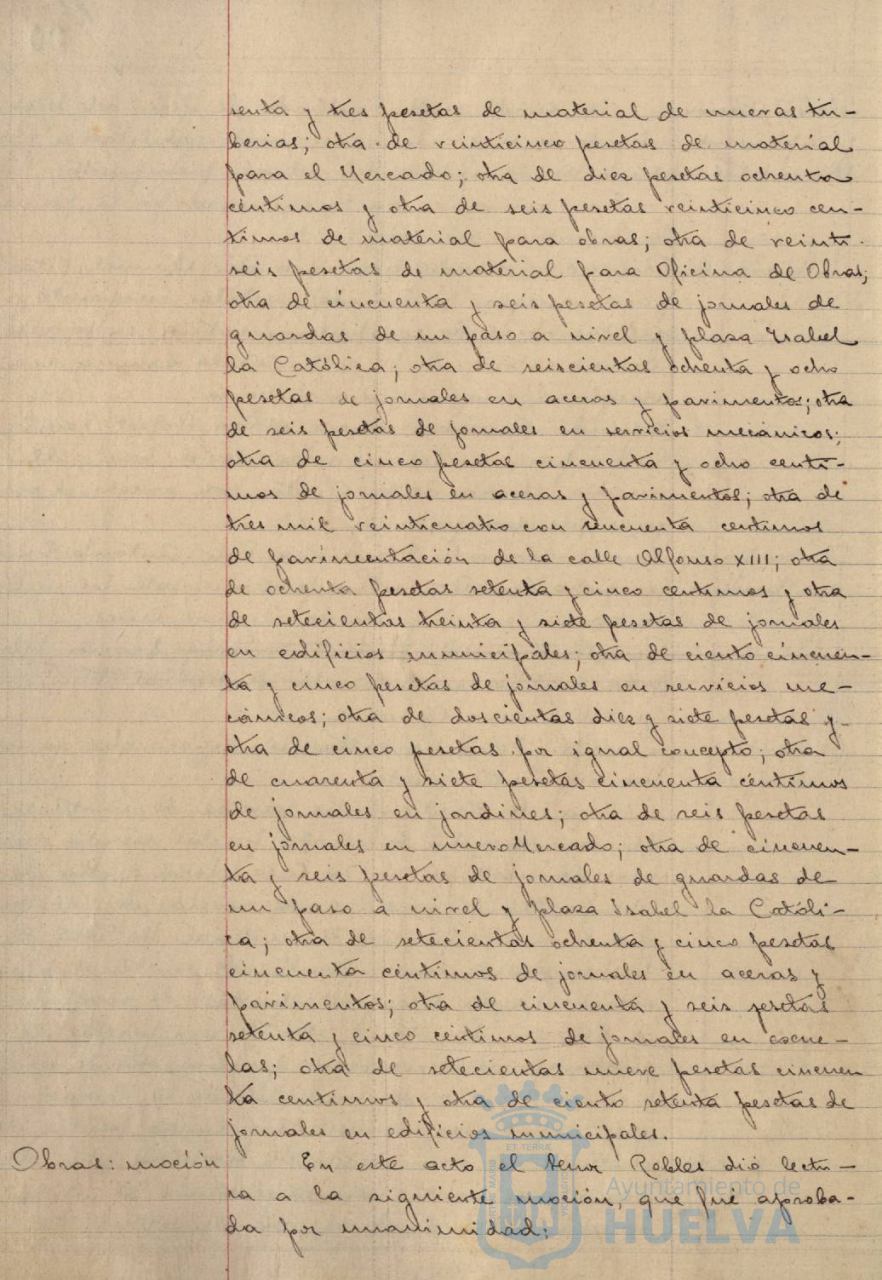 senta y tres pesetas de material de nuevas tu-
berias; otra de veinticinco pesetas de material
para el Mercado; otra de diez pesetas ochenta
céntimos y otra de seis pesetas veinticinco cen-
timos de material para obras; otra de veinti-
seis pesetas de material para Oficina de Obras;
otra de cincuenta y seis pesetas de jornales de
guardas de un paso a nivel y plaza Isabel
la Católica; otra de seiscientas ochenta y ocho
pesetas de jornales en aceras y pavimentos; otra
de seis pesetas de jornales en servicios mecánicos;
otra de cinco pesetas cincuenta y ocho centi-
mos de jornales en aceras y pavimentos; otra de
tres mil veinticuatro con cincuenta centimos
de pavimentación de la calle Alfonso XIII; otra
de ochenta pesetas setenta y cinco centimos y otra
de setecientas treinta y siete pesetas de jornales
en edificios municipales; otra de ciento cincuen-
ta y cinco pesetas de jornales en servicios me-
cánicos; otra de doscientas diez y siete pesetas y
otra de cinco pesetas por igual concepto; otra
de cuarenta y siete pesetas cincuenta céntimos
de jornales en jardines; otra de seis pesetas
en jornales en nuevo Mercado; otra de cincuen-
ta y seis pesetas de jornales de guardas de
un paso a nivel y plaza Isabel la Católi-
ca; otra de setecientas ochenta y cinco pesetas
cincuenta céntimos de jornales en aceras y
pavimentos; otra de cincuenta y seis pesetas
setenta y cinco céntimos de jornales en escue-
las; otra de setecientas nueve pesetas cincuen
ta centimos y otra de ciento setenta pesetas de
jornales en edificios municipales.
Obras: moción En este acto el Señor Robles dió lectu-
ra a la siguiente moción, que fué aproba-
da por unanimidad:
Ayuntamiento de
HUELVA